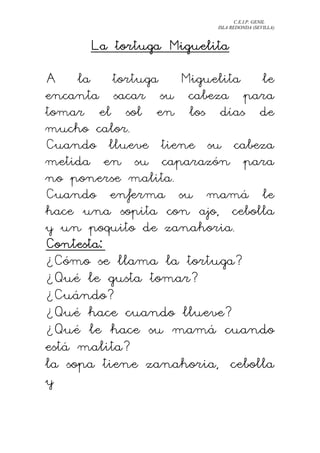 C.E.I.P. GENIL
ISLA REDONDA (SEVILLA)
La tortuga Miguelita
A la tortuga Miguelita le
encanta sacar su cabeza para
tomar el sol en los días de
mucho calor.
Cuando llueve tiene su cabeza
metida en su caparazón para
no ponerse malita.
Cuando enferma su mamá le
hace una sopita con ajo, cebolla
y un poquito de zanahoria.
Contesta:
¿Cómo se llama la tortuga?
¿Qué le gusta tomar?
¿Cuándo?
¿Qué hace cuando llueve?
¿Qué le hace su mamá cuando
está malita?
la sopa tiene zanahoria, cebolla
y